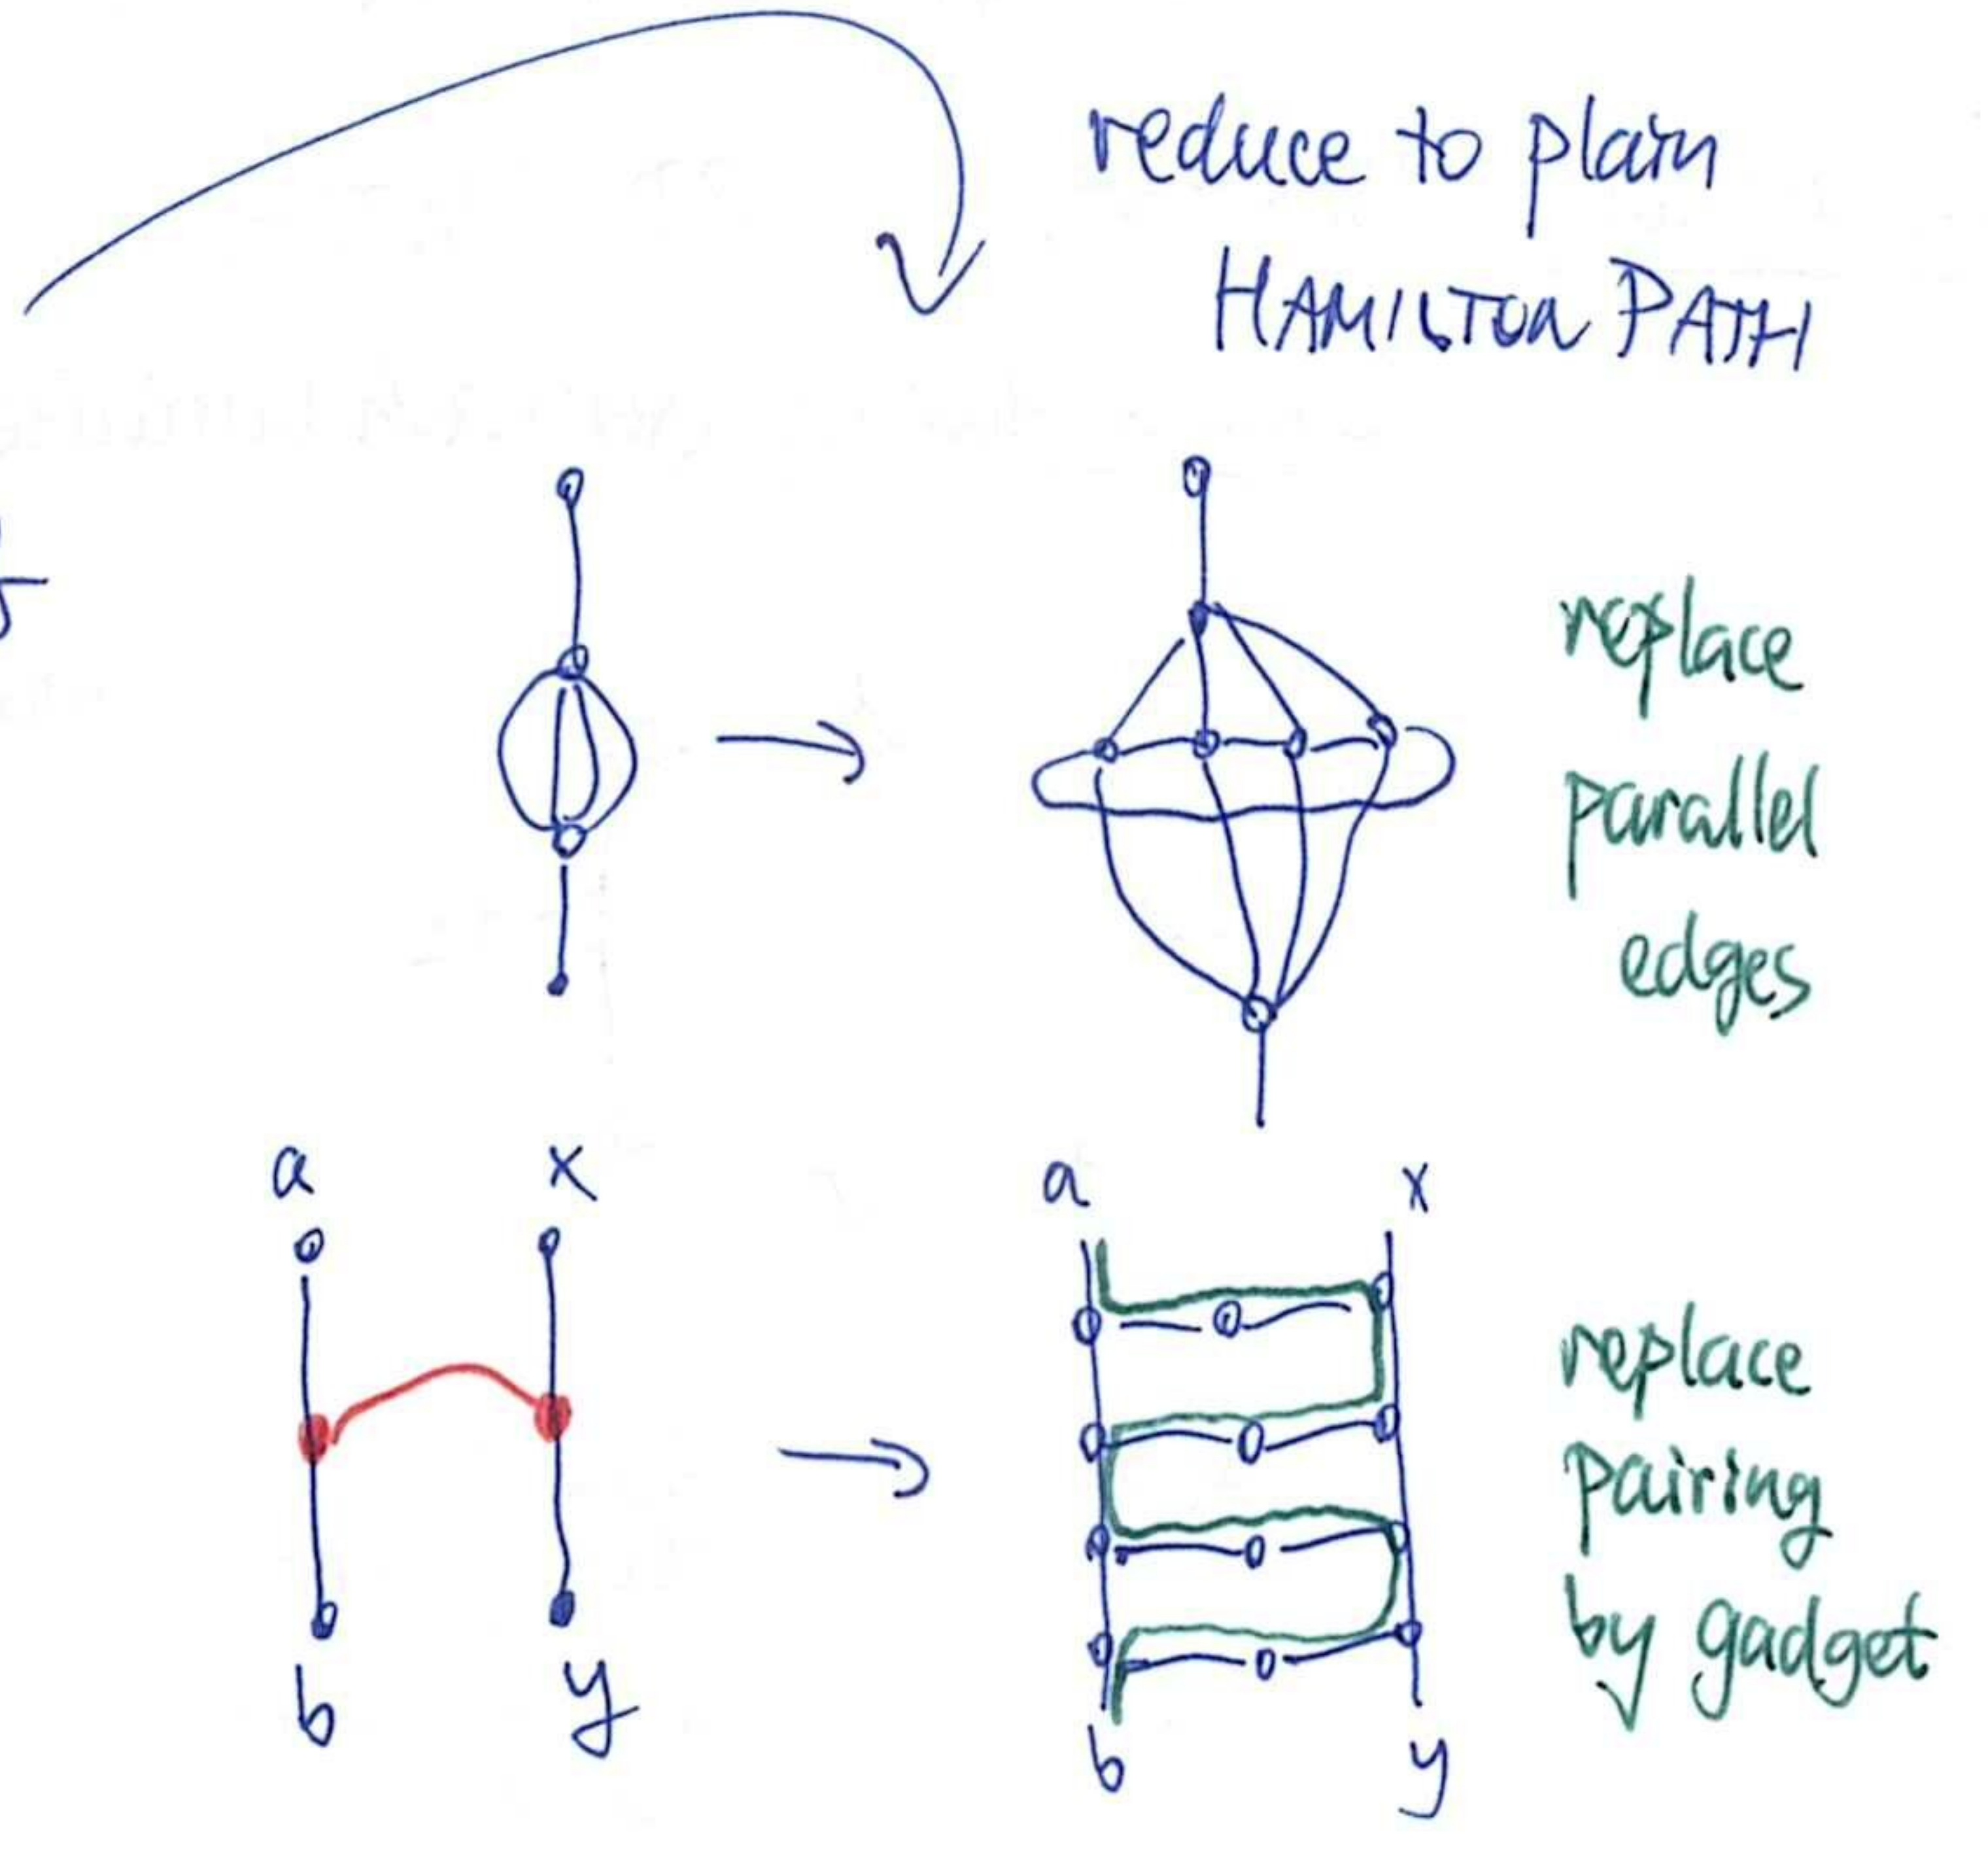 reduce to plain
HAMILTON PATH
replace
parallel
edges
a x
a x
replace
pairing
by gadget
b y
b y